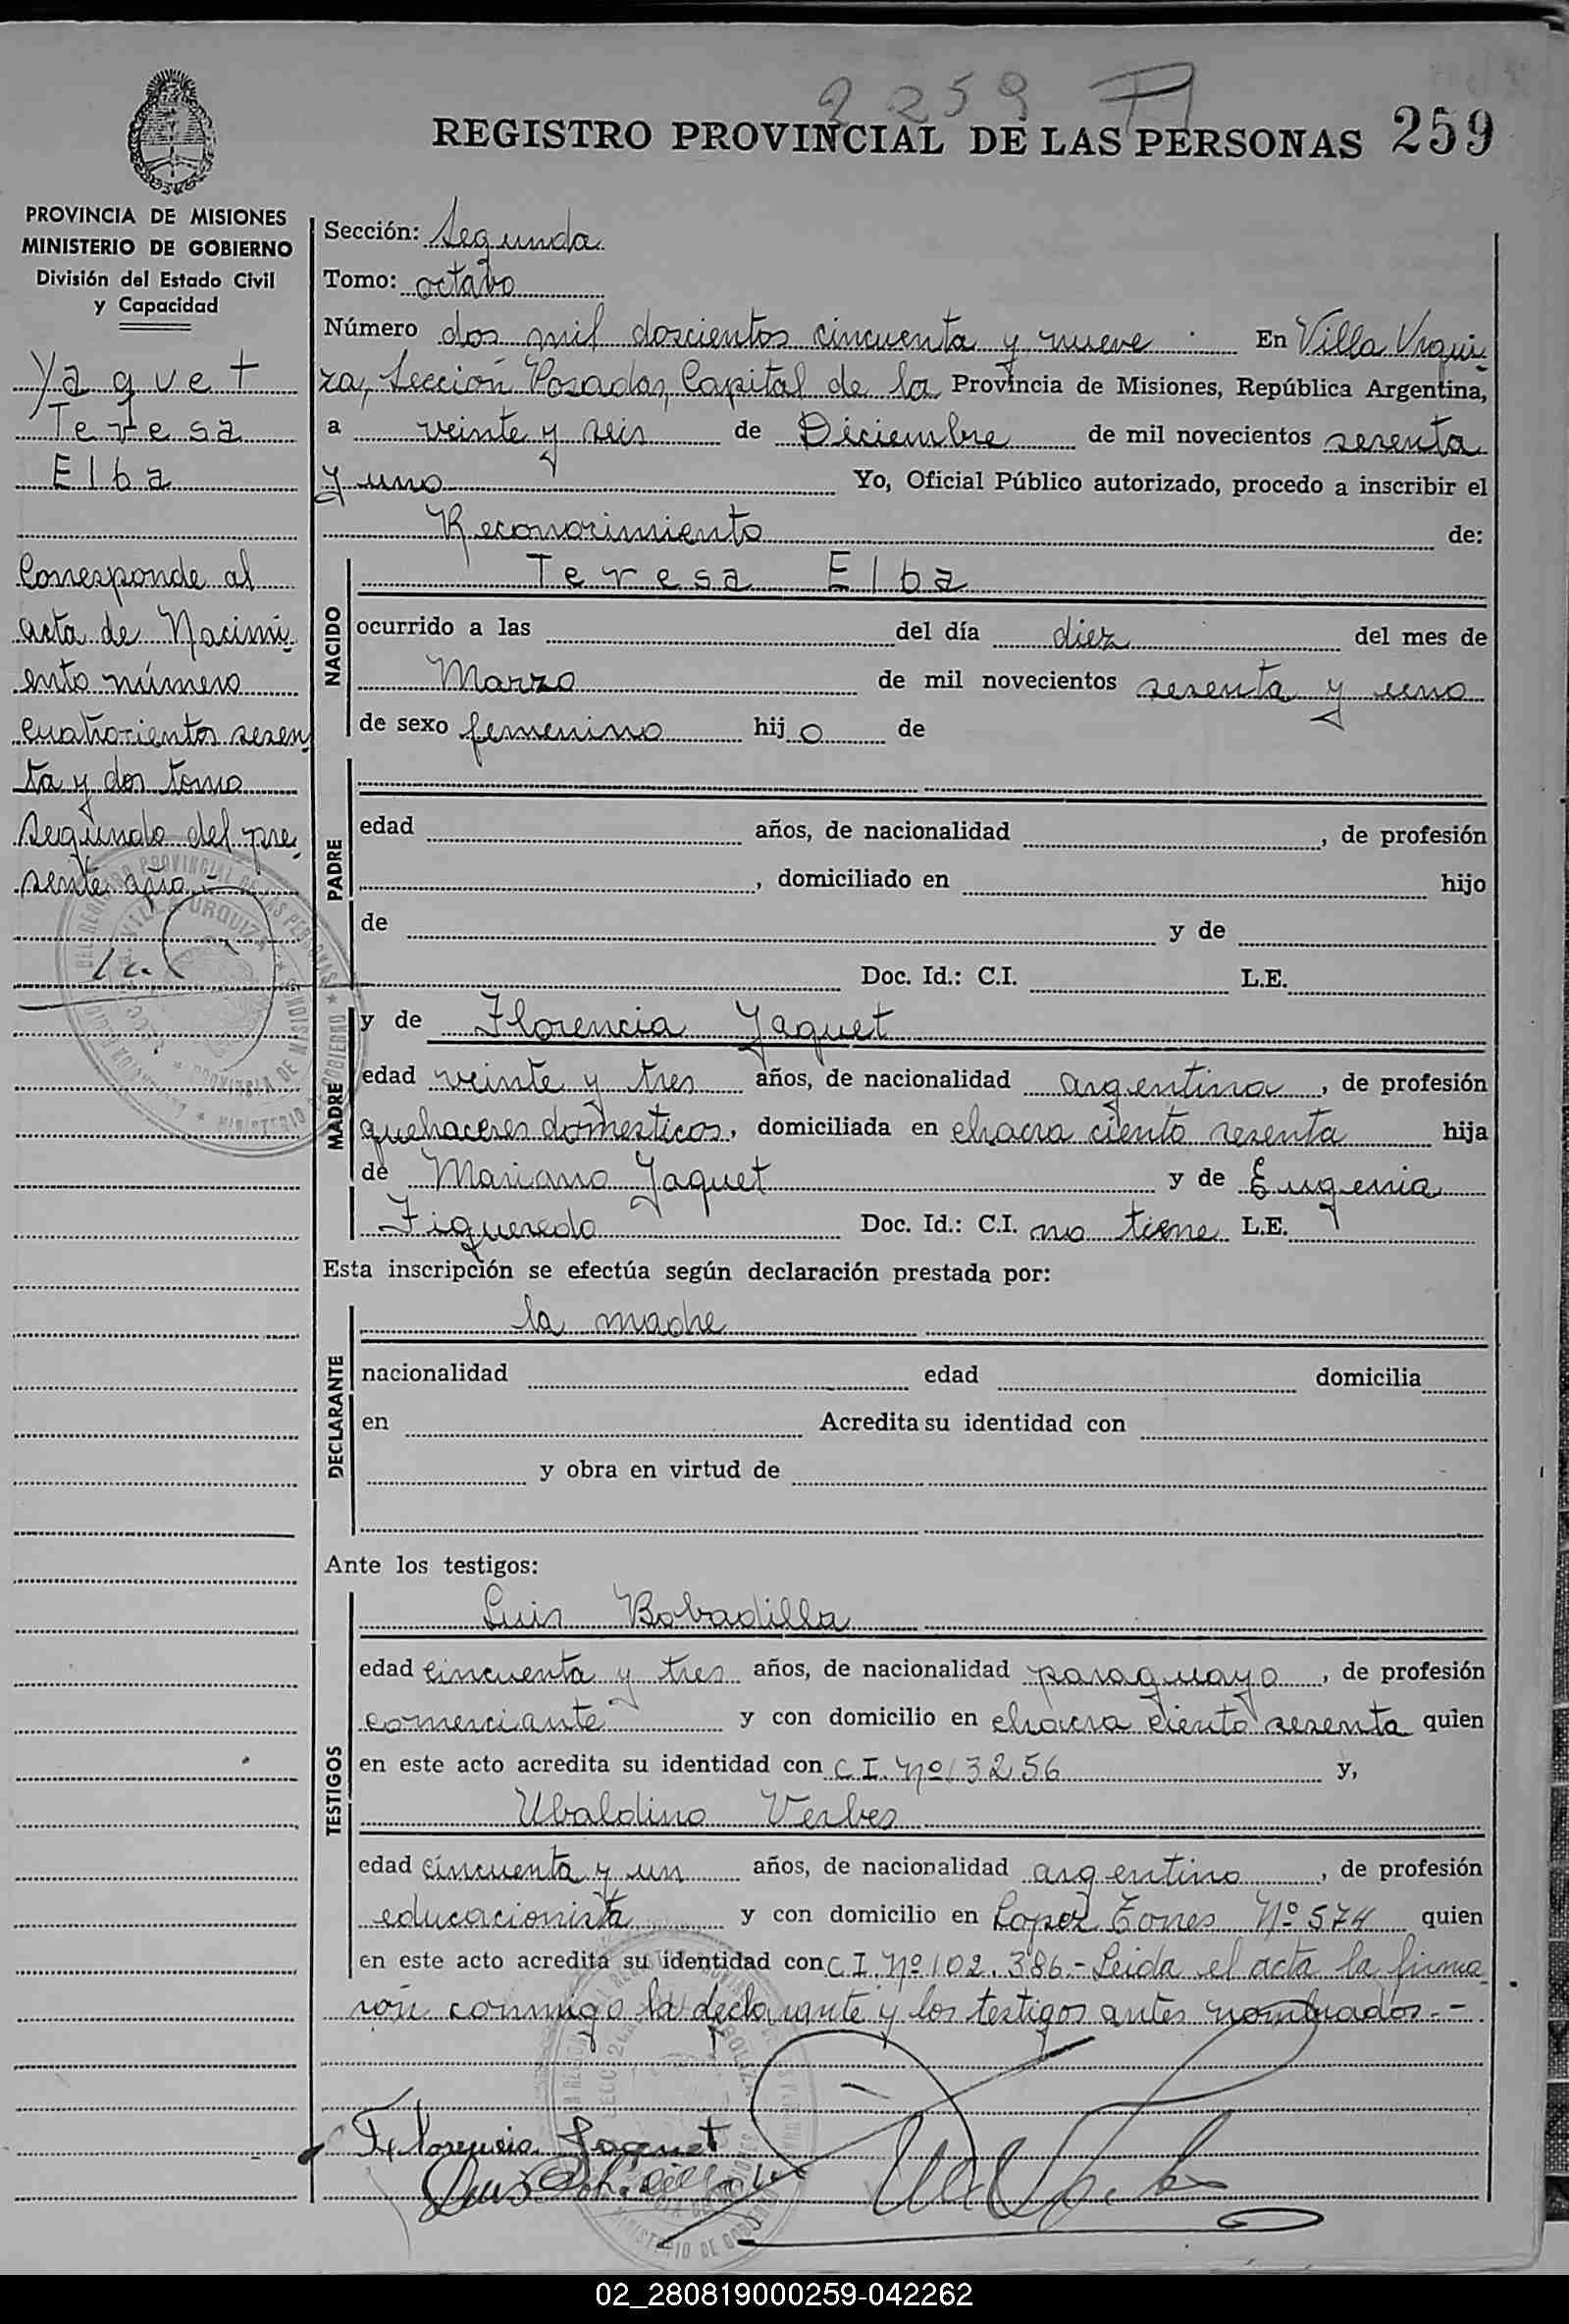 2259
REGISTRO PROVINCIAL DE LAS PERSONAS 259
PROVINCIA DE MISIONES
MINISTERIO DE GOBIERNO
División del Estado Civil
y Capacidad
Yaquet
Teresa
Elba
Corresponde al
acta de Nacimi-
ento número
cuatrocientos sesen
ta y dos tomo
segundo del pre-
sente año.-
Sección: Segunda
Tomo: octavo
Número dos mil doscientos cincuenta y nueve. En Villa Urqui-
za, Sección Posadas, Capital de la Provincia de Misiones, República Argentina,
a veinte y seis de Diciembre de mil novecientos sesenta
y uno Yo, Oficial Público autorizado, procedo a inscribir el
Reconocimiento de:
NACIDO
Teresa Elba
ocurrido a las del día diez del mes de
Marzo de mil novecientos sesenta y uno
de sexo femenino hijo de
PADRE
edad años, de nacionalidad , de profesión
, domiciliado en hijo
de y de
Doc. Id.: C.I. L.E.
MADRE
y de Florencia Yaquet
edad veinte y tres años, de nacionalidad argentina, de profesión
quehaceres domesticos, domiciliada en chacra ciento sesenta hija
de Mariano Yaquet y de Eugenia
Figueredo Doc. Id.: C.I. no tiene L.E.
Esta inscripción se efectúa según declaración prestada por:
DECLARANTE
la madre
nacionalidad edad domicilia
en Acredita su identidad con
y obra en virtud de
Ante los testigos:
TESTIGOS
Luis Bobadilla
edad cincuenta y tres años, de nacionalidad paraguayo, de profesión
comerciante y con domicilio en chacra ciento sesenta quien
en este acto acredita su identidad con C.I. Nº 13256 y,
Ubaldino Verbes
edad cincuenta y un años, de nacionalidad argentino, de profesión
educacionista y con domicilio en Lopez Torres Nº 574 quien
en este acto acredita su identidad con C.I. Nº 102.386.- Leida el acta la firma
ron conmigo la declarante y los testigos antes nombrados.-
Florencia Yaquet
02_280819000259-042262